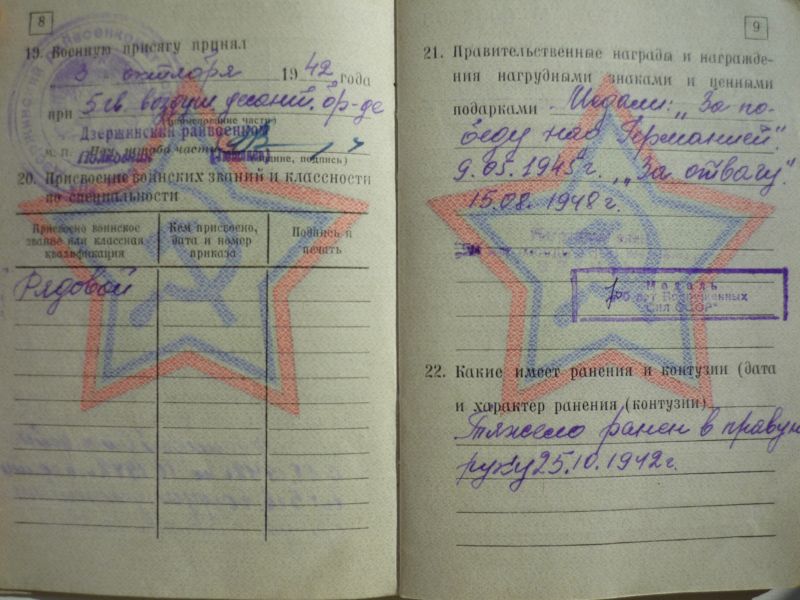 8
19. Военную присягу принял
3 октября 1942 года
при 5 гв. воздуш десант. бр-де
(наименование части)
Дзержинский райвоенком
М. П. Нач. штаба части
Полковник
20. Присвоение воинских званий и классности
по специальности
Присвоено воинское звание или классная квалификация
Кем присвоено, дата и номер приказа
Подпись и печать
Рядовой
9
21. Правительственные награды и награжде-
ния нагрудными знаками и ценными
подарками Медали: "За по-
беду над Германией".
9.05.1945 г. "За отвагу".
15.08.1948 г.
Медаль
лет Вооруженных
Сил СССР
22. Какие имеет ранения и контузии (дата
и характер ранения (контузии)
Тяжело ранен в правую
руку 25.10.1942 г.